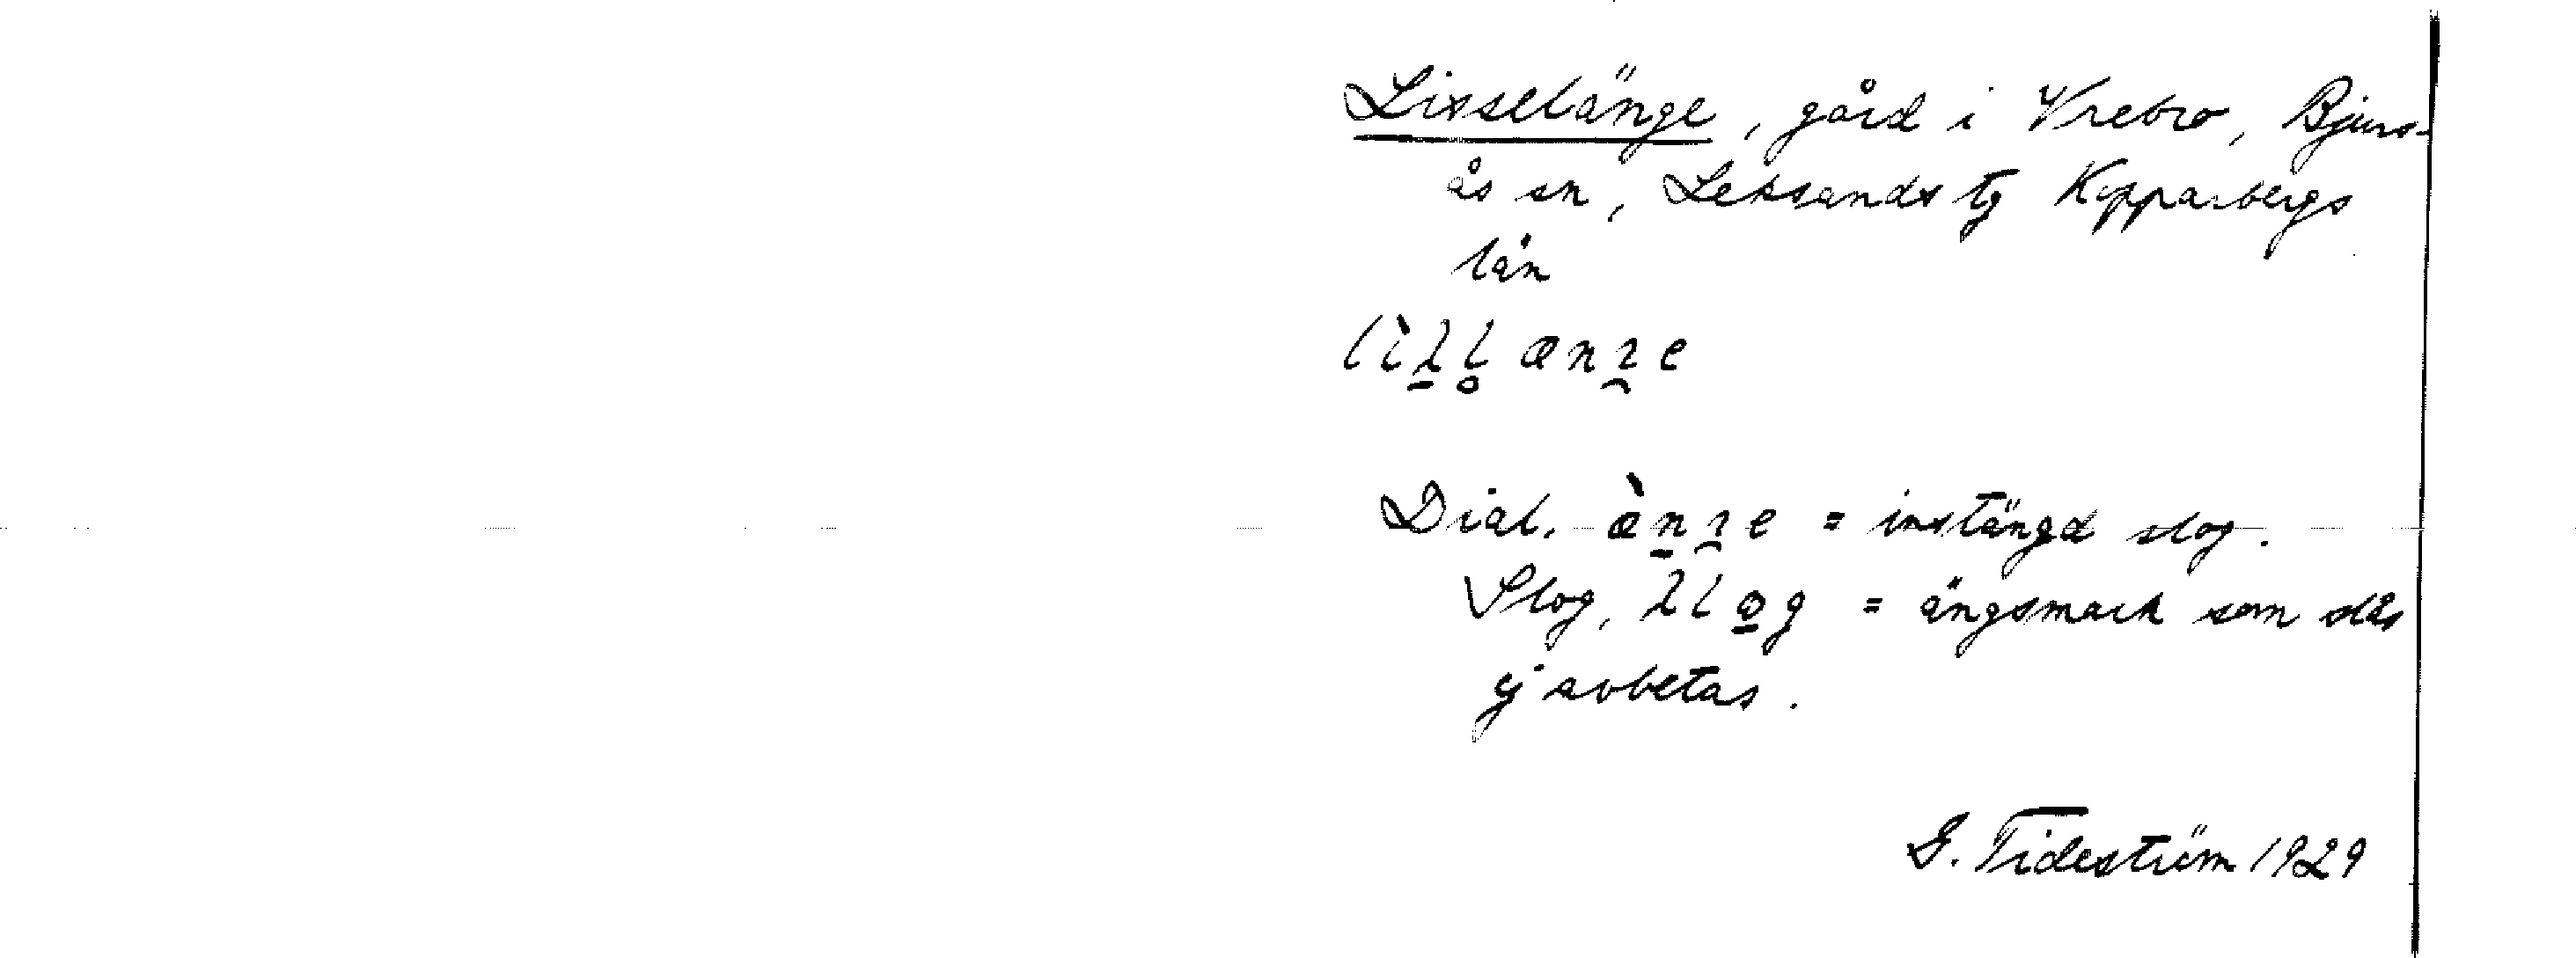 Lisselänge, gård i Vrebro, Bjurs-
ås sn, Leksands tg Kopparbergs
län
Dial. = instängd slog.
Slog, = ängsmark som slås
ej avbetas.
G. Tideström 1929